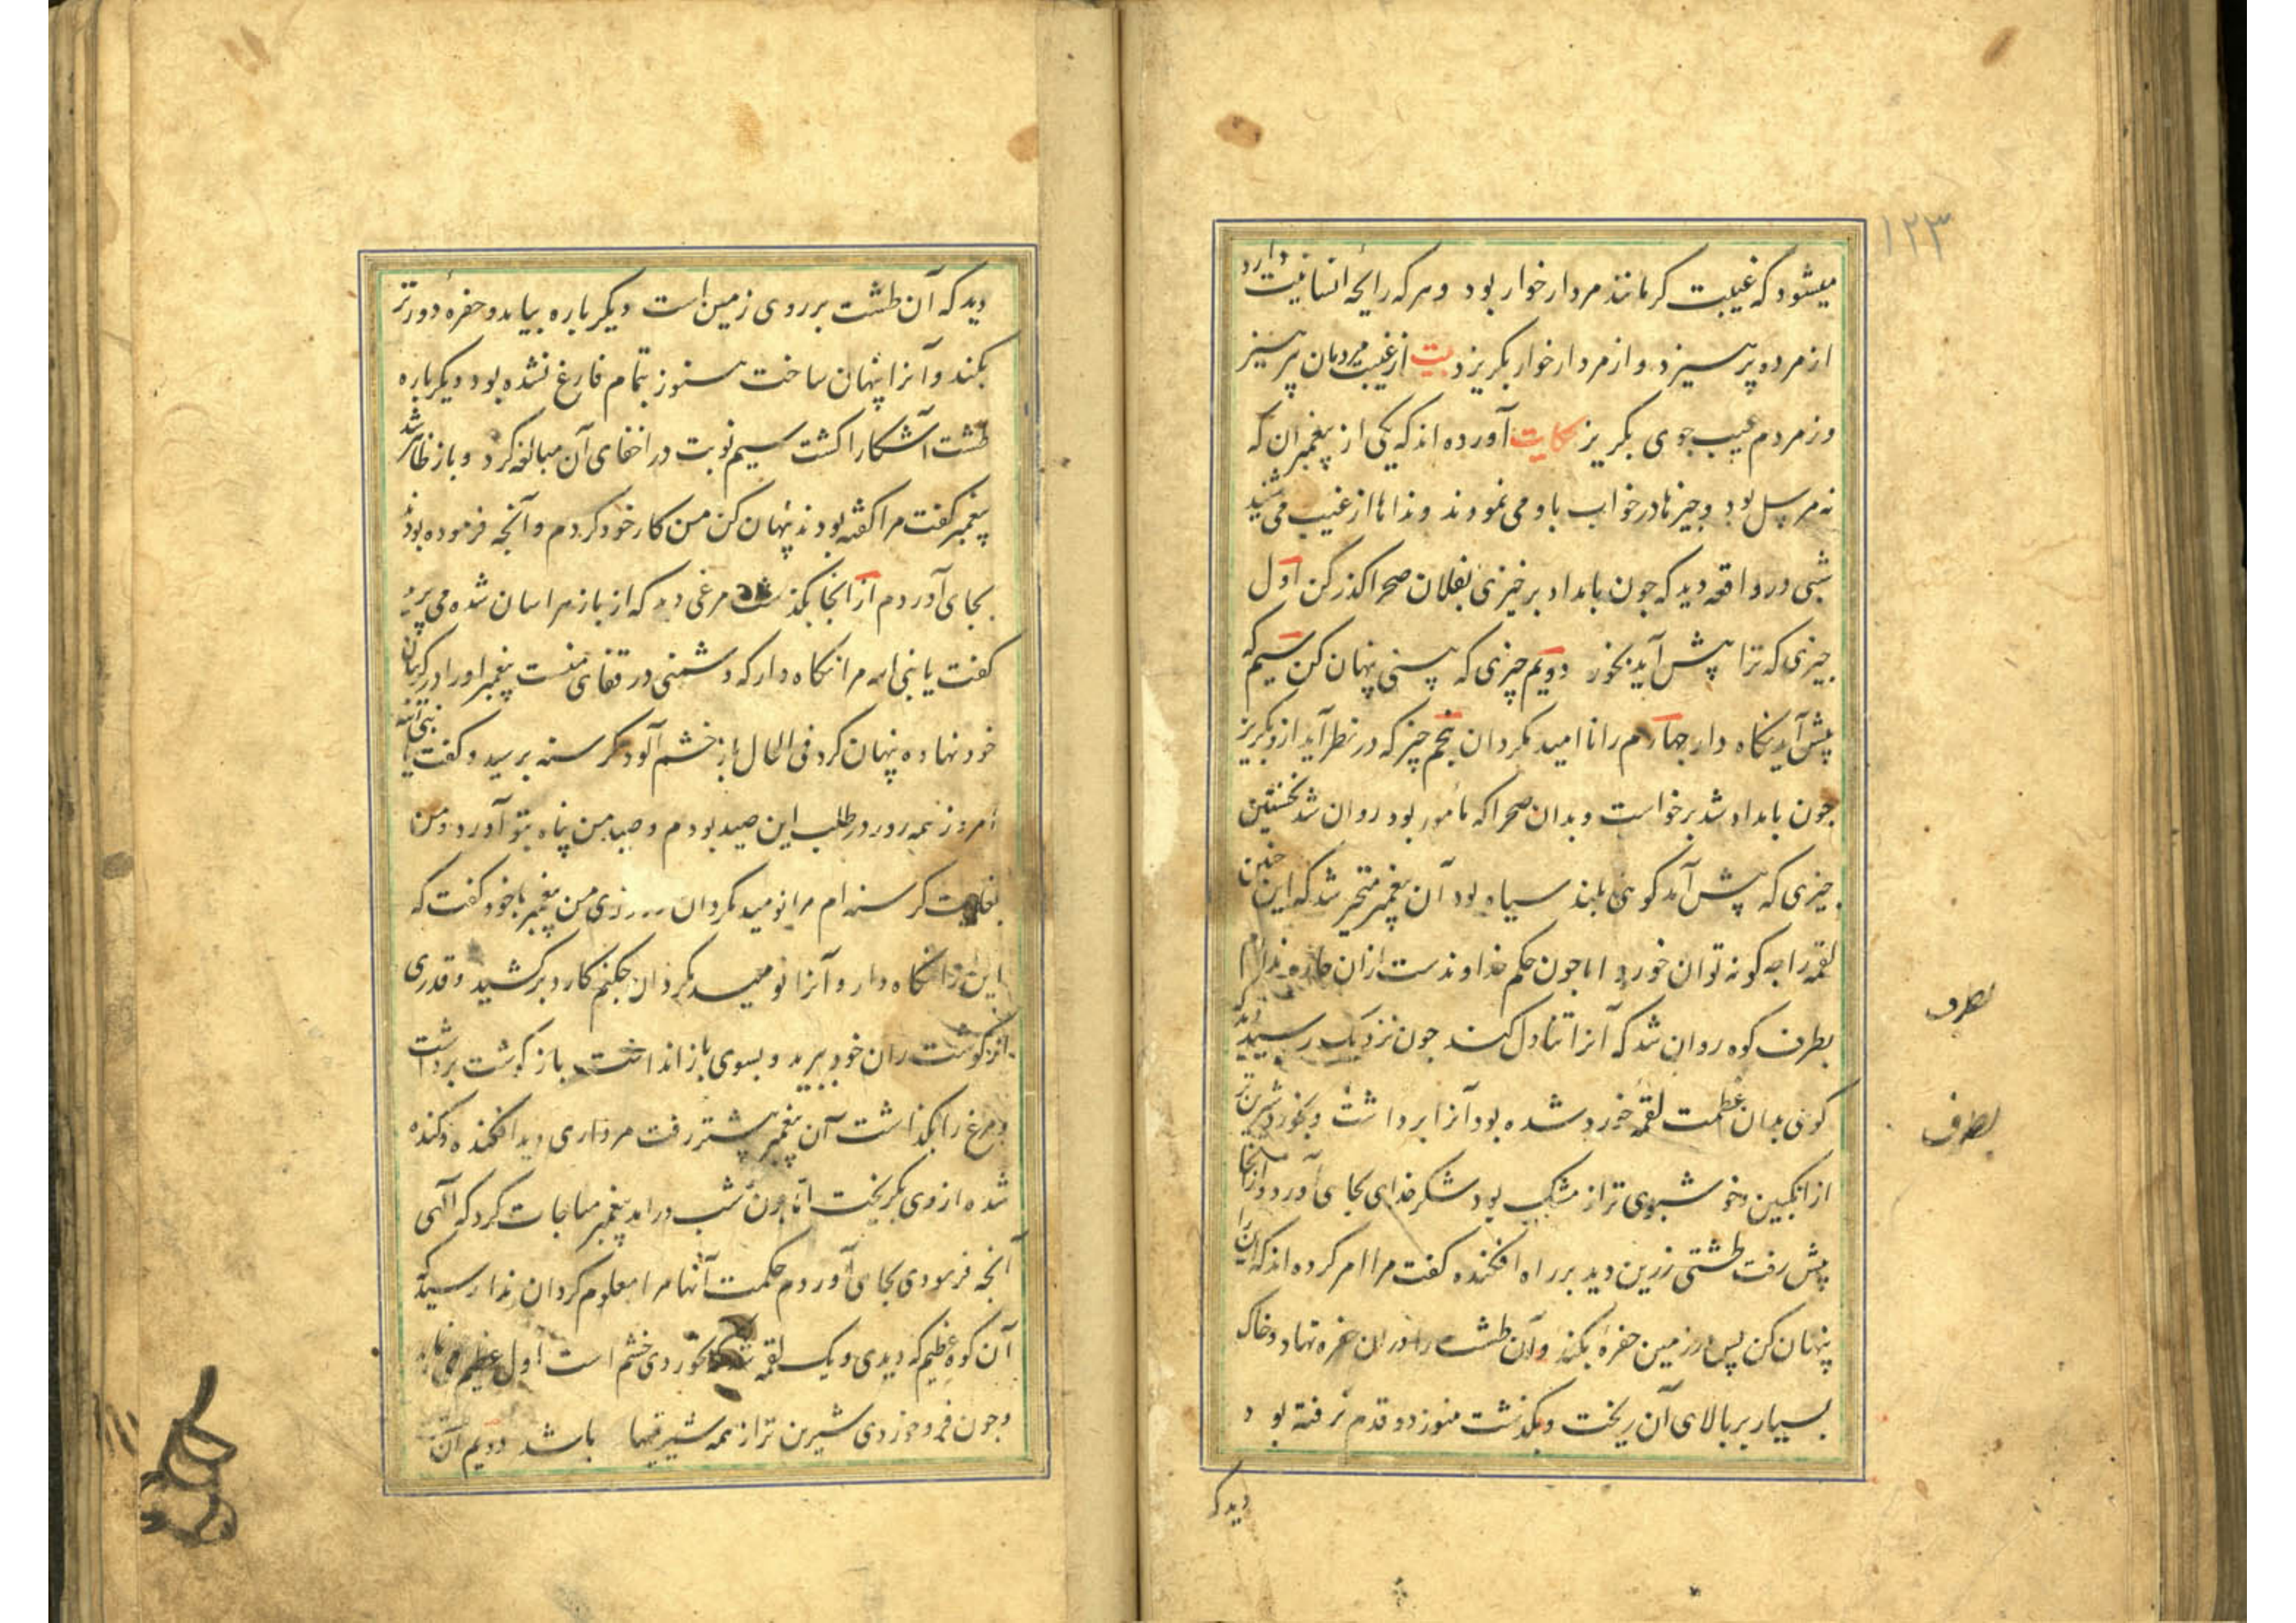 ۱۲۳
میشود که غیبت کر مانند مردار خوار بود و هر که رایحه انسانیت دارد
از مرده پرهیزد و از مردار خوار بگریزد بیت از غیبت مردمان پرهیز
وز مردم عیب جوی بگریز حکایت آورده اند که یکی از پیغمبران که
نه مرسل بود و چیزها در خواب باو می نمودند و نداها از غیب می شنید
شبی در واقعه دید که چون بامداد برخیزی بفلان صحرا گذر کن اول
چیزی که ترا پیش آید بخور دویم چیزی که بینی پنهان کن سیم که
پیش آید نگاه دار چهارم را ناامید مگردان پنجم چیز که در نظر آید ازو بگریز
چون بامداد شد برخواست و بدان صحرا که مأمور بود روان شد نخستین
چیزی که پیش آمد کوهی بلند سیاه بود آن پیغمبر متحیر شد که این چنین
لقمه را چه کونه توان خورد اما چون حکم خداوندست از ان چاره ندارم
بطرف کوه روان شد که آنرا تناول کند چون نزدیک رسید دید که
کوهی بدان عظمت لقمه خورد شده بود آنرا برداشت و بخورد شیرین تر
از انگبین و خوشبوی تر از مشک بود شکر خدای بجای آورد و از انجا
پیش رفت طشتی زرین دید بر راه افکنده گفت مرا امر کرده اند که این را
پنهان کن پس در زمین حفره بکند و آن طشت را در ان حفره نهاد و خاک
بسیار بر بالای آن ریخت و بگذشت هنوز دو قدم نرفته بود
دید که
بطرف
بطرف
دید که آن طشت بر روی زمین است دیگر باره بیامد و حفره دورتر
بکند و آنرا پنهان ساخت هنوز بتمام فارغ نشده بود دیگر باره
طشت آشکارا گشت سیم نوبت در اخفای آن مبالغه کرد و باز ظاهر شد
پیغمبر گفت مرا گفته بودند پنهان کن من کار خود کردم و آنچه فرموده بودند
بجای آوردم از انجا بگذشت مرغی دید که از باز هراسان شده می پرید
گفت یا نبی الله مرا نگاه دار که دشمنی در قفای منست پیغمبر او را در گریبان
خود نهاده پنهان کرد فی الحال باز خشم آلود گرسنه برسید و گفت یا نبی الله
امروز همه روز در طلب این صید بودم و صید من پناه بتو آورد و من
بغایت گرسنه ام مرا نومید مگردان روزی من پیغمبر با خود گفت که
این را نگاه دار و آنرا نومید مگردان چکنم کارد برکشید و قدری
از گوشت ران خود ببرید و بسوی باز انداخت باز گوشت برداشت
و مرغ را بگذاشت آن پیغمبر پیشتر رفت مرداری دید افکنده و گنده
شده از وی بگریخت اما چون شب درامد پیغمبر مناجات کرد که الهی
آنچه فرمودی بجای آوردم حکمت آنها مرا معلوم گردان ندا رسید که
آن کوه عظیم که دیدی و یک لقمه خوردی خشم است اول عظیم می نماید
و چون فرو خوردی شیرین تر از همه شیرینیها باشد دویم آن